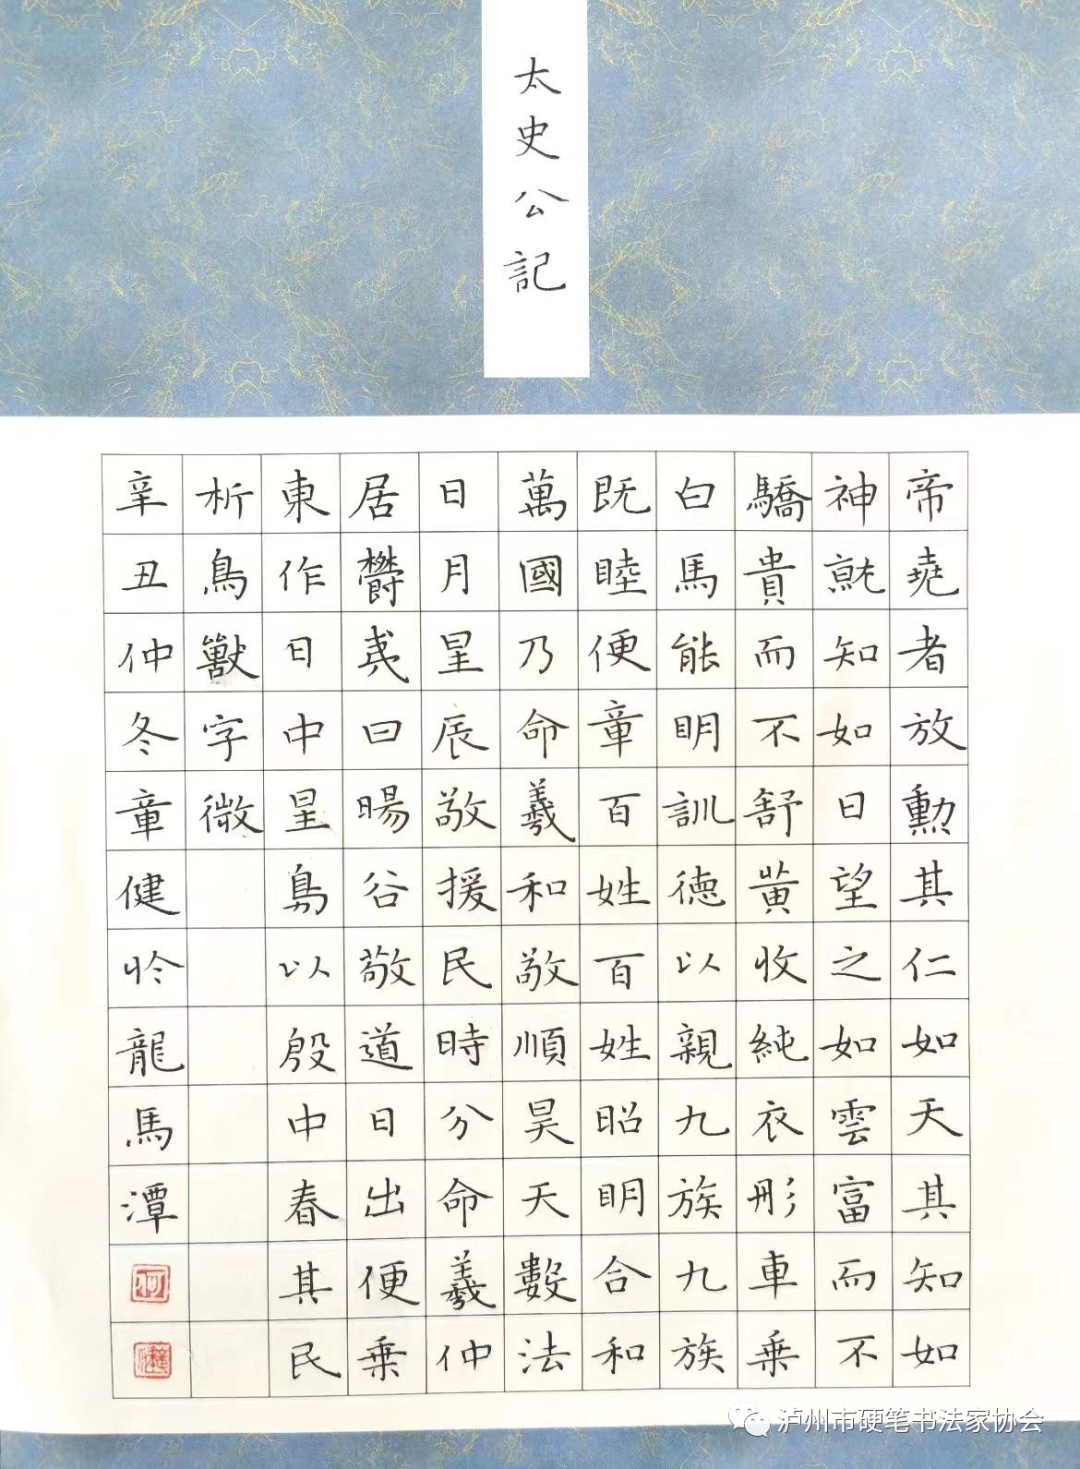 太史公記
帝堯者放勳其仁如天其知如
神就知如日望之如雲富而不
驕貴而不舒黃收純衣彤車乗
白馬能明訓德以親九族九族
既睦便章百姓百姓昭明合和
萬國乃命羲和敬順昊天數法
日月星辰敬援民時分命羲仲
居欝夷曰暘谷敬道日出便乗
東作日中星鳥以殷中春其民
析鳥獸字微
辛丑仲冬章健於龍馬潭
泸州市硬笔书法家协会